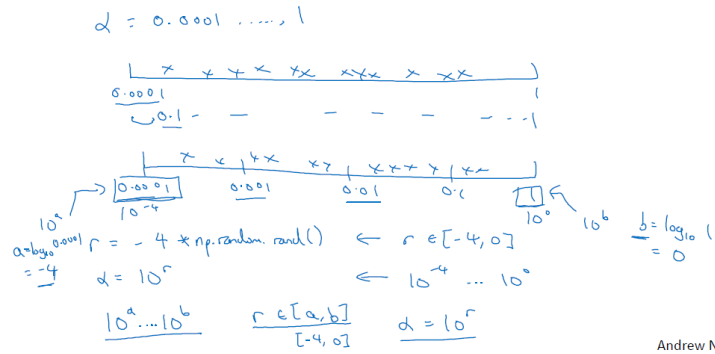 α = 0.0001 ....., 1
0.0001 1
0.1 - - - - - - - . . . 1
0.0001 0.001 0.01 0.1 1
10^-4 10^0
10^a 10^b
a = log_10 0.0001 = -4
r = -4 * np.random.rand() ← r ∈ [-4, 0]
b = log_10 1 = 0
α = 10^r ← 10^-4 ... 10^0
10^a ... 10^b r ∈ [a, b] α = 10^r
[-4, 0]
Andrew N